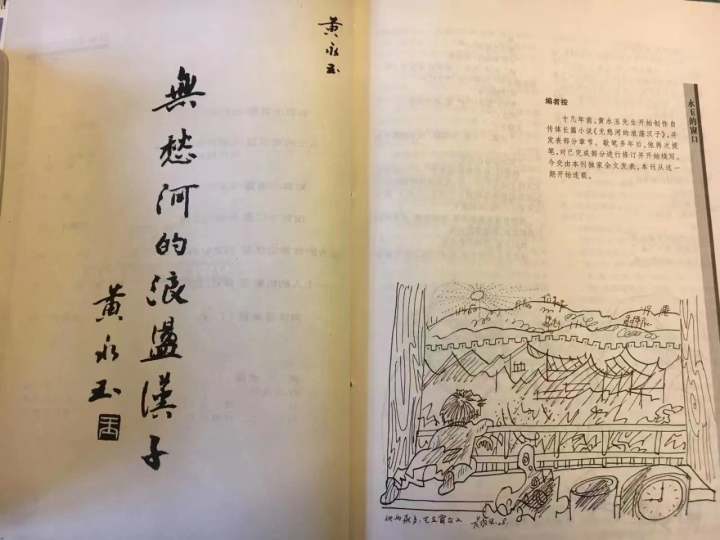 黄永玉
無愁河的浪盪漢子
黄永玉
永玉的窗口
编者按
十几年前，黄永玉先生开始创作自
传体长篇小说《无愁河的浪荡汉子》，并
发表部分章节。歇笔多年后，他再次提
笔，对已完成部分进行修订并开始续写。
今受由本刊独家全文发表，本刊从这一
期开始连载。